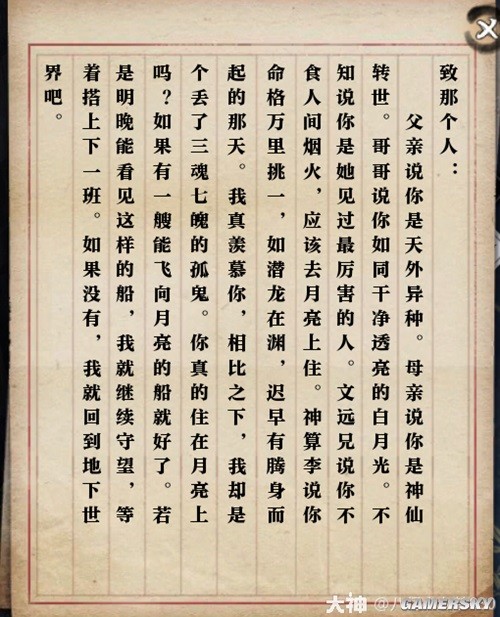 致那个人：
父亲说你是天外异种。母亲说你是神仙
转世。哥哥说你如同干净透亮的白月光。不
知说你是她见过最厉害的人。文远兄说你不
食人间烟火，应该去月亮上住。神算李说你
命格万里挑一，如潜龙在渊，迟早有腾身而
起的那天。我真羡慕你，相比之下，我却是
个丢了三魂七魄的孤鬼。你真的住在月亮上
吗？如果有一艘能飞向月亮的船就好了。若
是明晚能看见这样的船，我就继续守望，等
着搭上下一班。如果没有，我就回到地下世
界吧。
大神
GAMERSKY